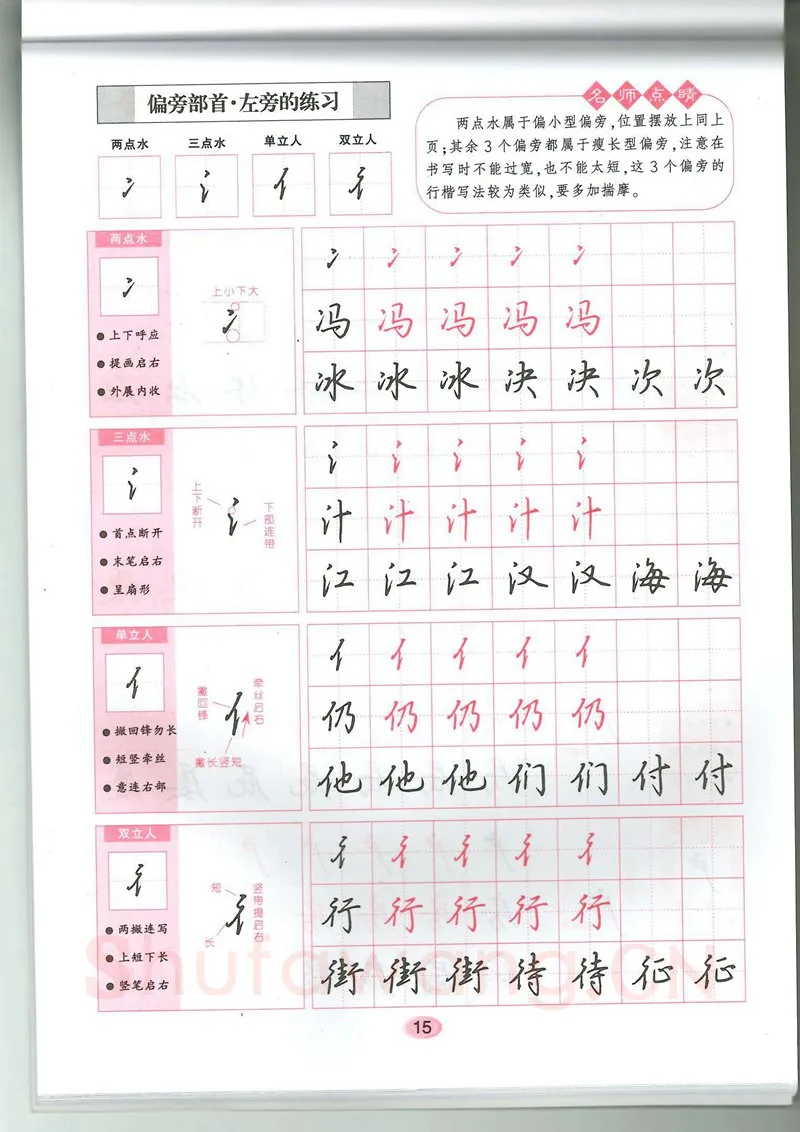 偏旁部首·左旁的练习
名师点睛
两点水属于偏小型偏旁,位置摆放上同上
页;其余3个偏旁都属于瘦长型偏旁,注意在
书写时不能过宽,也不能太短,这3个偏旁的
行楷写法较为类似,要多加揣摩。
两点水 三点水 单立人 双立人
冫 氵 亻 彳
两点水
冫
上下呼应
提画启右
外展内收
上小下大
冫
冫 冫 冫 冫 冫
冯 冯 冯 冯 冯
冰 冰 冰 决 决 次 次
三点水
氵
首点断开
末笔启右
呈扇形
上下断开
氵
下部连带
氵 氵 氵 氵 氵
汁 汁 汁 汁 汁
江 江 江 汉 汉 海 海
单立人
亻
撇回锋勿长
短竖牵丝
意连右部
撇回锋
亻
牵丝启右
撇长竖短
亻 亻 亻 亻 亻
仍 仍 仍 仍 仍
他 他 他 们 们 付 付
双立人
彳
两撇连写
上短下长
竖笔启右
短
彳
竖带提启右
长
彳 彳 彳 彳 彳
行 行 行 行 行
街 街 街 待 待 征 征
Shufawang.CN
15